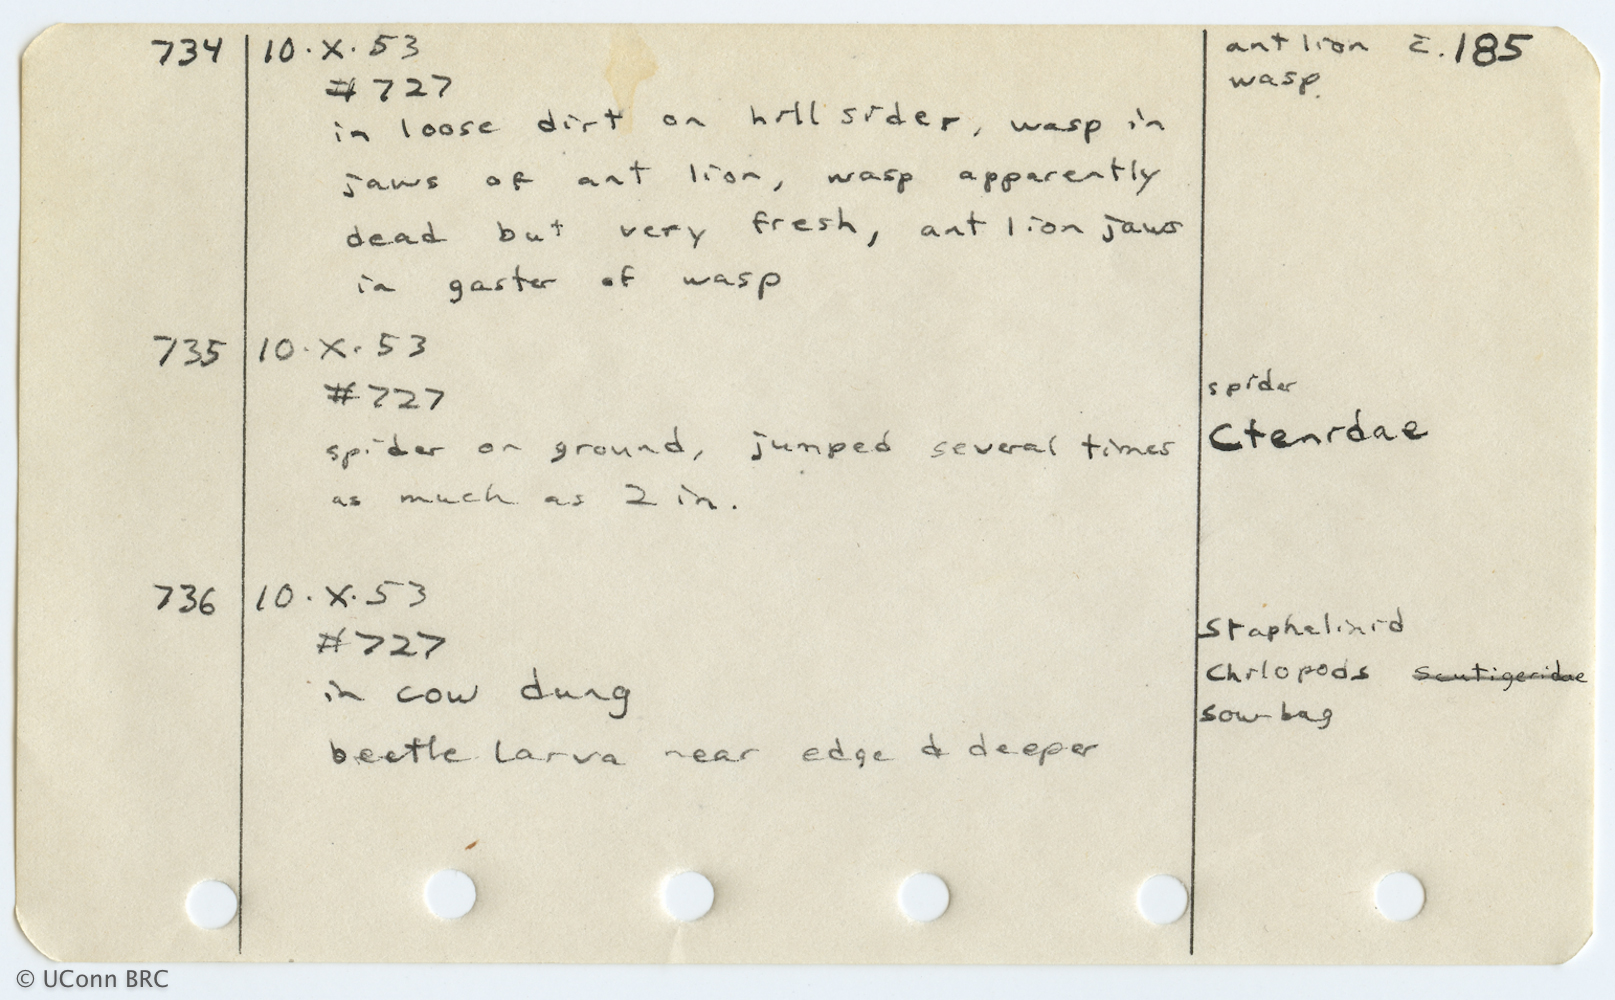 734 10·X·53 ant lion c̄.185
#727 wasp
in loose dirt on hill sider, wasp in
jaws of ant lion, wasp apparently
dead but very fresh, ant lion jaws
in gaster of wasp
735 10·X·53
#727 spider
spider on ground, jumped several times Ctenidae
as much as 2 in.
736 10·X·53 Staphelinid
#727 Chilopods Scutigeridae
in cow dung sow-bag
beetle larva near edge & deeper
© UConn BRC